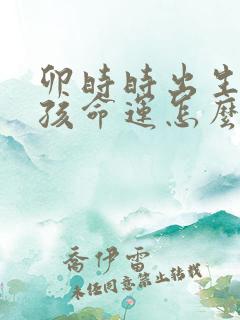 卯時時出生
孩命運怎麼
喬伊雷
未经同意禁止转载